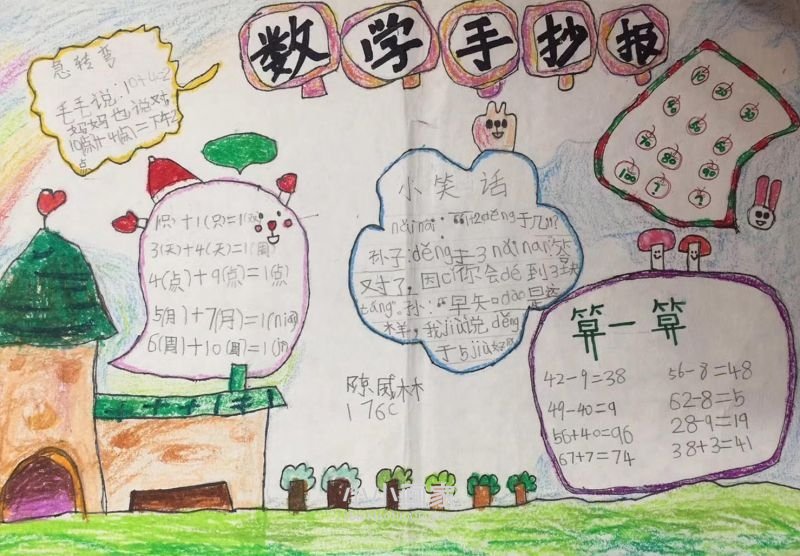 数学手抄报
急转弯
毛毛说:10+4=2
妈妈也说对
10点+4点=下午2
点
1(只)+1(只)=1(双)
3(天)+4(天)=1(周)
4(点)+9(点)=1(点)
5(月)+7(月)=1(nián)
6(周)+10(周)=1(
小笑话
nǎinai:“1+2děng于几?”
孙子:děng于3 nǎinai:答
对了,因cǐ你会dé到3块
táng。孙:“早知dào是这
样,我jiù说děng
于5jiù好
陈威林
176C
10 20 30
算一算
42-9=38 56-8=48
49-40=9 62-8=5
56+40=96 28-9=19
67+7=74 38+3=41